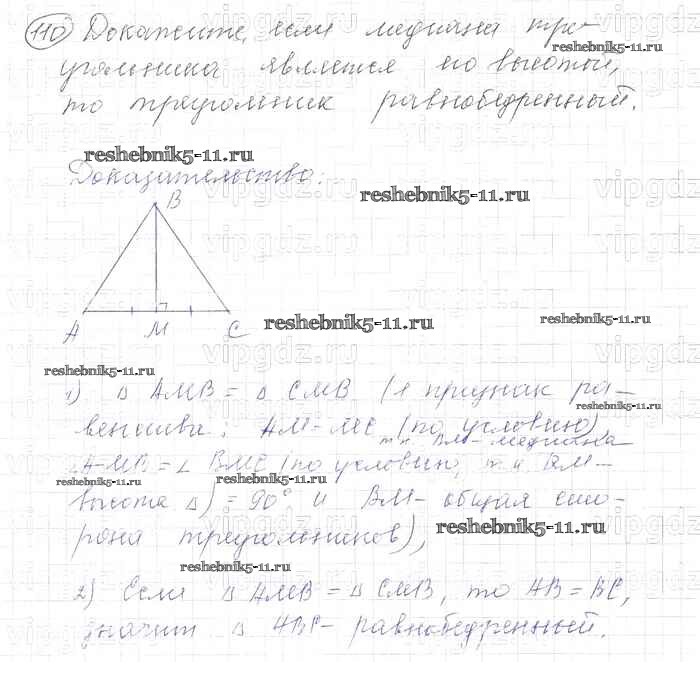 110 Докажите, если медиана тре-
reshebnik5-11.ru
угольника является его высотой,
то треугольник равнобедренный.
reshebnik5-11.ru
Доказательство:
reshebnik5-11.ru
B
A M C
reshebnik5-11.ru
reshebnik5-11.ru
reshebnik5-11.ru
1) Δ AMB = Δ CMB (1 признак ра-
reshebnik5-11.ru
венства: AM=MC (по условию),
т.к. BM-медиана
∠AMB = ∠ BMC (по условию, т.к. BM-
reshebnik5-11.ru
reshebnik5-11.ru
высота Δ) = 90° и BM- общая сто-
рона треугольников),
reshebnik5-11.ru
reshebnik5-11.ru
2) Если Δ AMB = Δ CMB, то AB = BC,
значит Δ ABC- равнобедренный.